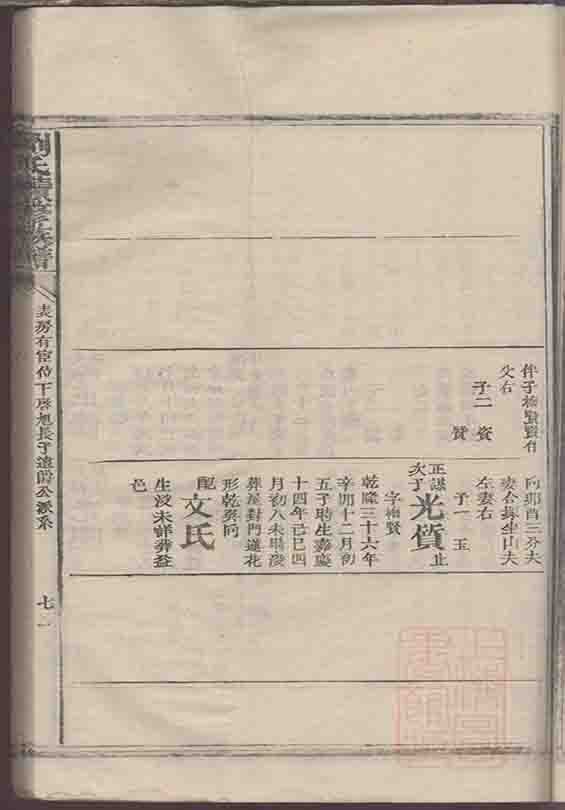 伴子梅賢賢有
父右
子二 資
贊
向卯酉三分夫
妻合塟坐山夫
左妻右
子一 玉
正謀
次子
光贊 止
字梅賢
乾隆三十六年
辛卯十二月初
五子時生嘉慶
十四年己巳四
月初八未時歿
葬屋對門蓮花
形乾巽向
配文氏
生歿未詳葬益
邑
劉氏續修族譜
表房有宦位下啓旭長子遠爵公派系
七一